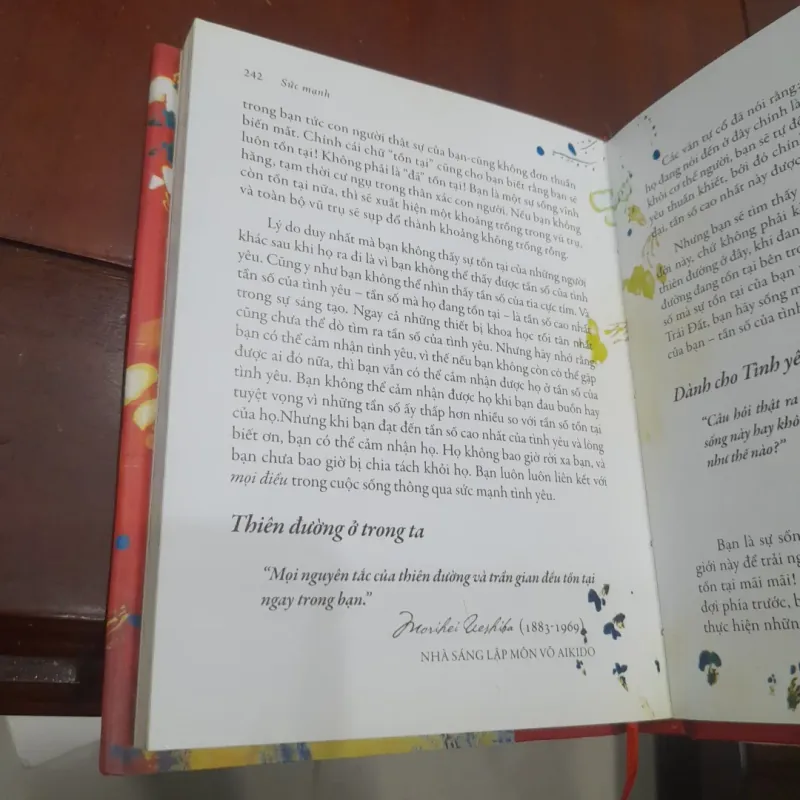 242 Sức mạnh
trong bạn tức con người thật sự của bạn-cũng không đơn thuần
biến mất. Chính cái chữ "tồn tại" cũng cho bạn biết rằng bạn sẽ
luôn tồn tại! Không phải là "đã" tồn tại! Bạn là một sự sống vĩnh
hằng, tạm thời cư ngụ trong thân xác con người. Nếu bạn không
còn tồn tại nữa, thì sẽ xuất hiện một khoảng trống trong vũ trụ,
và toàn bộ vũ trụ sẽ sụp đổ thành khoảng không trống rỗng.
Lý do duy nhất mà bạn không thấy sự tồn tại của những người
khác sau khi họ ra đi là vì bạn không thể thấy được tần số của tình
yêu. Cũng y như bạn không thể nhìn thấy tần số của tia cực tím. Và
tần số của tình yêu – tần số mà họ đang tồn tại – là tần số cao nhất
trong sự sáng tạo. Ngay cả những thiết bị khoa học tối tân nhất
cũng chưa thể dò tìm ra tần số của tình yêu. Nhưng hãy nhớ rằng,
bạn có thể cảm nhận tình yêu, vì thế nếu bạn không còn có thể gặp
được ai đó nữa, thì bạn vẫn có thể cảm nhận được họ ở tần số của
tình yêu. Bạn không thể cảm nhận được họ khi bạn đau buồn hay
tuyệt vọng vì những tần số ấy thấp hơn nhiều so với tần số tồn tại
của họ.Nhưng khi bạn đạt đến tần số cao nhất của tình yêu và lòng
biết ơn, bạn có thể cảm nhận họ. Họ không bao giờ rời xa bạn, và
bạn chưa bao giờ bị chia tách khỏi họ. Bạn luôn luôn liên kết với
mọi điều trong cuộc sống thông qua sức mạnh tình yêu.
Thiên đường ở trong ta
“Mọi nguyên tắc của thiên đường và trần gian đều tồn tại
ngay trong bạn.”
Morihei Ueshiba (1883-1969)
NHÀ SÁNG LẬP MÔN VÕ AIKIDO
Các văn tự cổ đã nói rằng:
họ đang nói đến ở đây chính là
khỏi cơ thể người, bạn sẽ tự độ
yêu thuần khiết, bởi đó chính
đại, tần số cao nhất này được
Nhưng bạn sẽ tìm thấy
đời này, chứ không phải k
thiên đường ở đây, khi đan
đường đang tồn tại bên tro
số mà sự tồn tại của bạn
Trái Đất, bạn hãy sống m
của bạn – tần số của tình
Dành cho Tình yê
“Câu hỏi thật ra
sống này hay khô
như thế nào?”
Bạn là sự sốn
giới này để trải ng
tồn tại mãi mãi!
đợi phía trước, b
thực hiện những